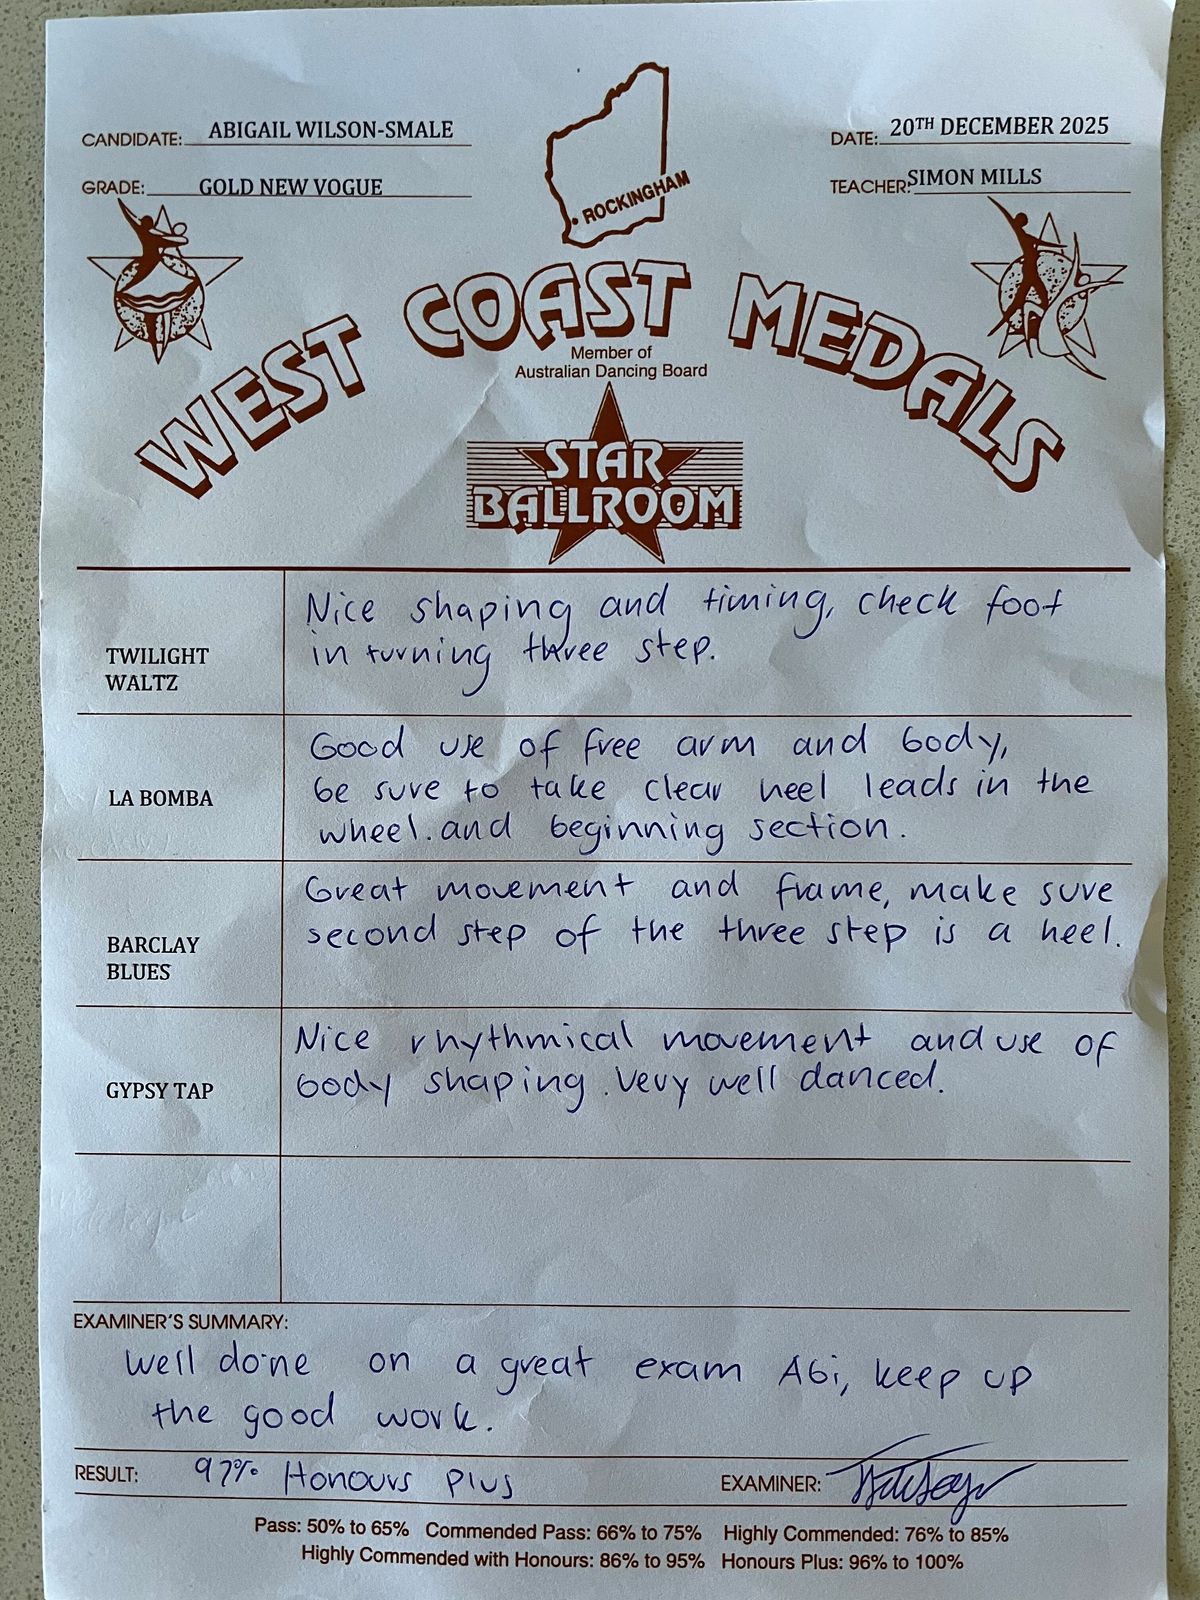 CANDIDATE: ABIGAIL WILSON-SMALE
GRADE: GOLD NEW VOGUE
DATE: 20TH DECEMBER 2025
TEACHER: SIMON MILLS
ROCKINGHAM
WEST COAST MEDALS
Member of
Australian Dancing Board
STAR
BALLROOM
TWILIGHT
WALTZ
Nice shaping and timing, check foot
in turning three step.
LA BOMBA
Good use of free arm and body,
be sure to take clear heel leads in the
wheel. and beginning section.
BARCLAY
BLUES
Great movement and frame, make sure
second step of the three step is a heel.
GYPSY TAP
Nice rhythmical movement and use of
body shaping. Very well danced.
EXAMINER'S SUMMARY:
Well done on a great exam Abi, keep up
the good work.
RESULT: 97% Honours Plus
EXAMINER:
Pass: 50% to 65% Commended Pass: 66% to 75% Highly Commended: 76% to 85%
Highly Commended with Honours: 86% to 95% Honours Plus: 96% to 100%